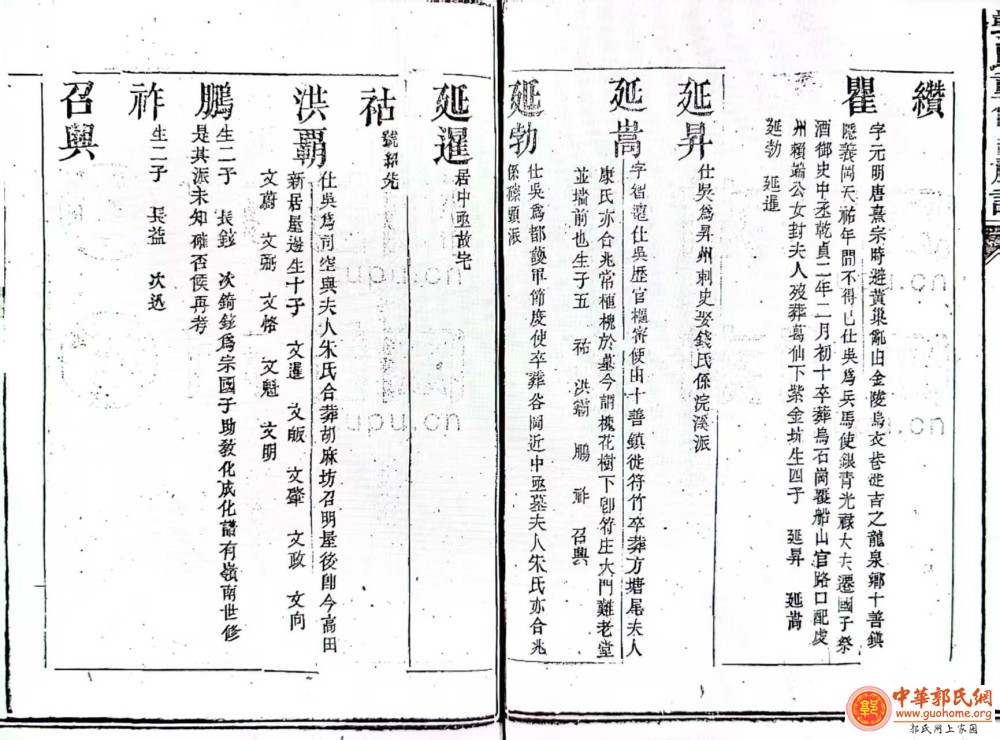 纘
瞿
字元明唐熹宗時避黃巢亂由金陵烏衣巷徙吉之龍泉鄉十善鎮
隱義岡天祐年間不得已仕吳為兵馬使銀青光祿大夫遷國子祭
酒御史中丞乾貞二年二月初十卒葬烏石崗覆船山官路口配虔
州賴端公女封夫人歿葬葛仙下紫金坑生四子 延昇 延嵩
延勃 延暹
延昇
仕吳為昇州刺史娶錢氏係浣溪派
延嵩
字智 仕吳歷官樞密使由十善鎮徙符竹卒葬方塘尾夫人
康氏亦合兆常植槐於墓今謂槐花樹下卽符庄大門難老堂
並墻前也生子五 祐 洪霸 鵬 祚 召興
延勃
仕吳為都護軍節度使卒葬 岡近中丞墓夫人朱氏亦合兆
係 頭派
延暹
居中丞故宅
祐
號紹堯
洪霸
仕吳為司空與夫人朱氏合葬胡麻坊召明屋後卽今高田
新居屋邊生十子 文暹 文皈 文肇 文政 文向
文蔚 文弼 文恪 文魁 文朗
鵬
生二子 長鉉 次錡鉉為宗國子助教化成化譜有嶺南世修
是其派未知確否俟再考
祚
生二子 長益 次迅
召興
upu.cn
upu.cn
upu.cn
upu.cn
中華郭氏網
www.guohome.org
郭氏网上家园